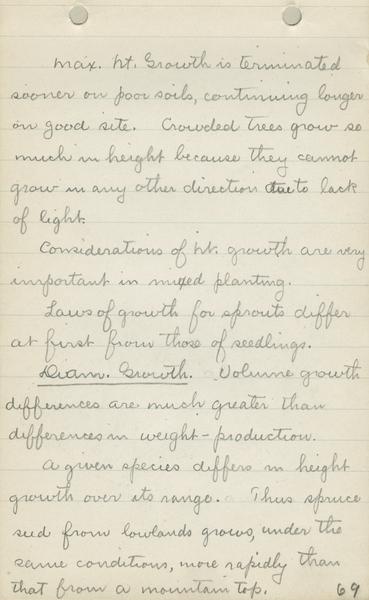 Max. ht. Growth is terminated
sooner on poor soils, continuing longer
on good site. Crowded trees grow so
much in height because they cannot
grow in any other direction due to lack
of light.
Considerations of ht. growth are very
important in mixed planting.
Laws of growth for sprouts differ
at first from those of seedlings.
Diam. Growth. Volume growth
differences are much greater than
differences in weight-production.
A given species differs in height
growth over its range. Thus spruce
seed from lowlands grows, under the
same conditions, more rapidly than
that from a mountain top. 69